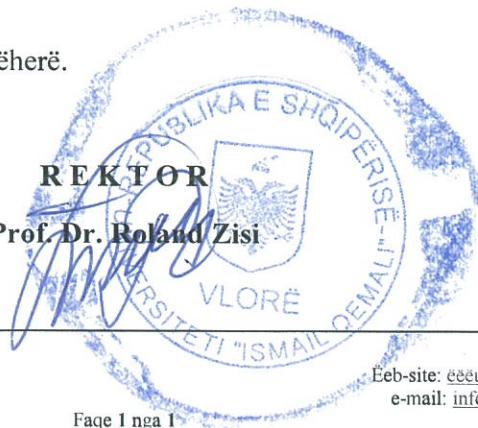 ëherë.
REKTOR
Prof. Dr. Roland Zisi
REPUBLIKA E SHQIPËRISË
UNIVERSITETI "ISMAIL QEMALI"
VLORË
Ëeb-site:
e-mail: info
Faqe 1 nga 1